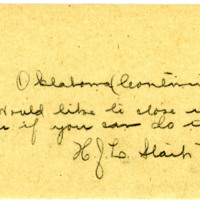 Oklahoma Contin
Would like to close
if you can do
H. J. L. Stark